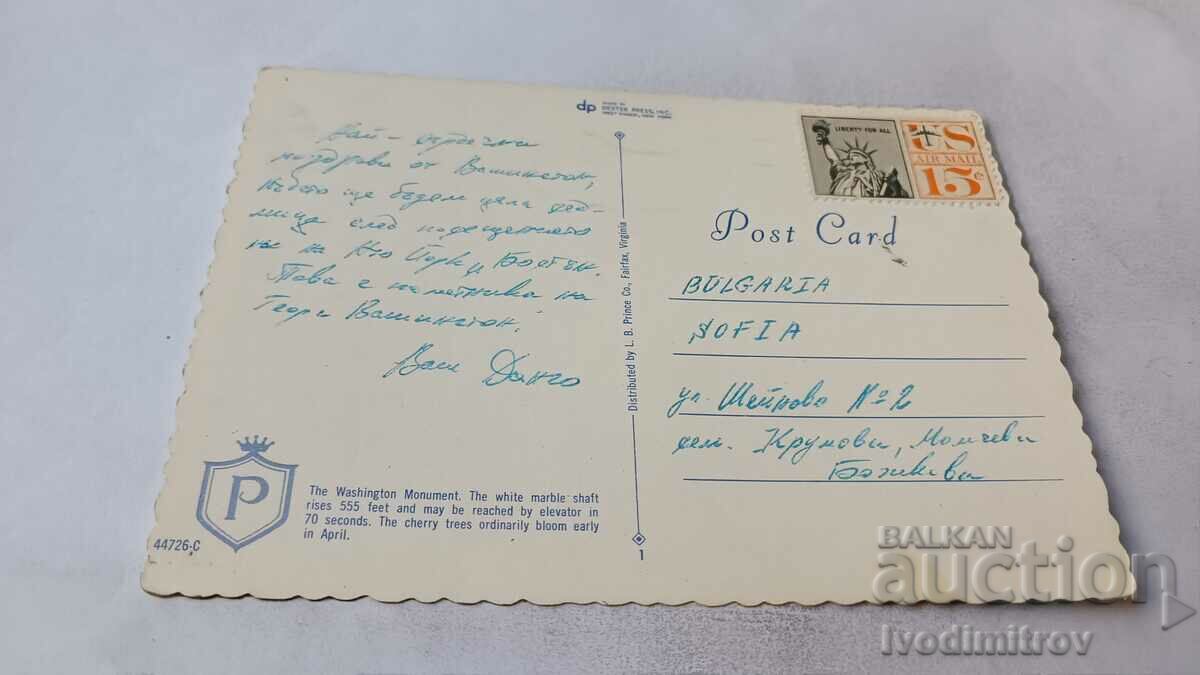 dp MADE BY
DEXTER PRESS, INC.
WEST NYACK, NEW YORK
Най-сърдечни
поздрави от Вашингтон,
където ще бъдем цяла сед-
мица след посещението
ни на Ню Йорк и Бостън.
Това е паметника на
Георг Вашингтон.
Ваш Данчо
P
The Washington Monument. The white marble shaft
rises 555 feet and may be reached by elevator in
70 seconds. The cherry trees ordinarily bloom early
in April.
44726-C
Distributed by L. B. Prince Co., Fairfax, Virginia
1
LIBERTY FOR ALL
US
AIR MAIL
15¢
Post Card
BULGARIA
SOFIA
ул. Шейново №2
сем. Крумови, Момчеви
Божкови
BALKAN
auction
Ivodimitrov